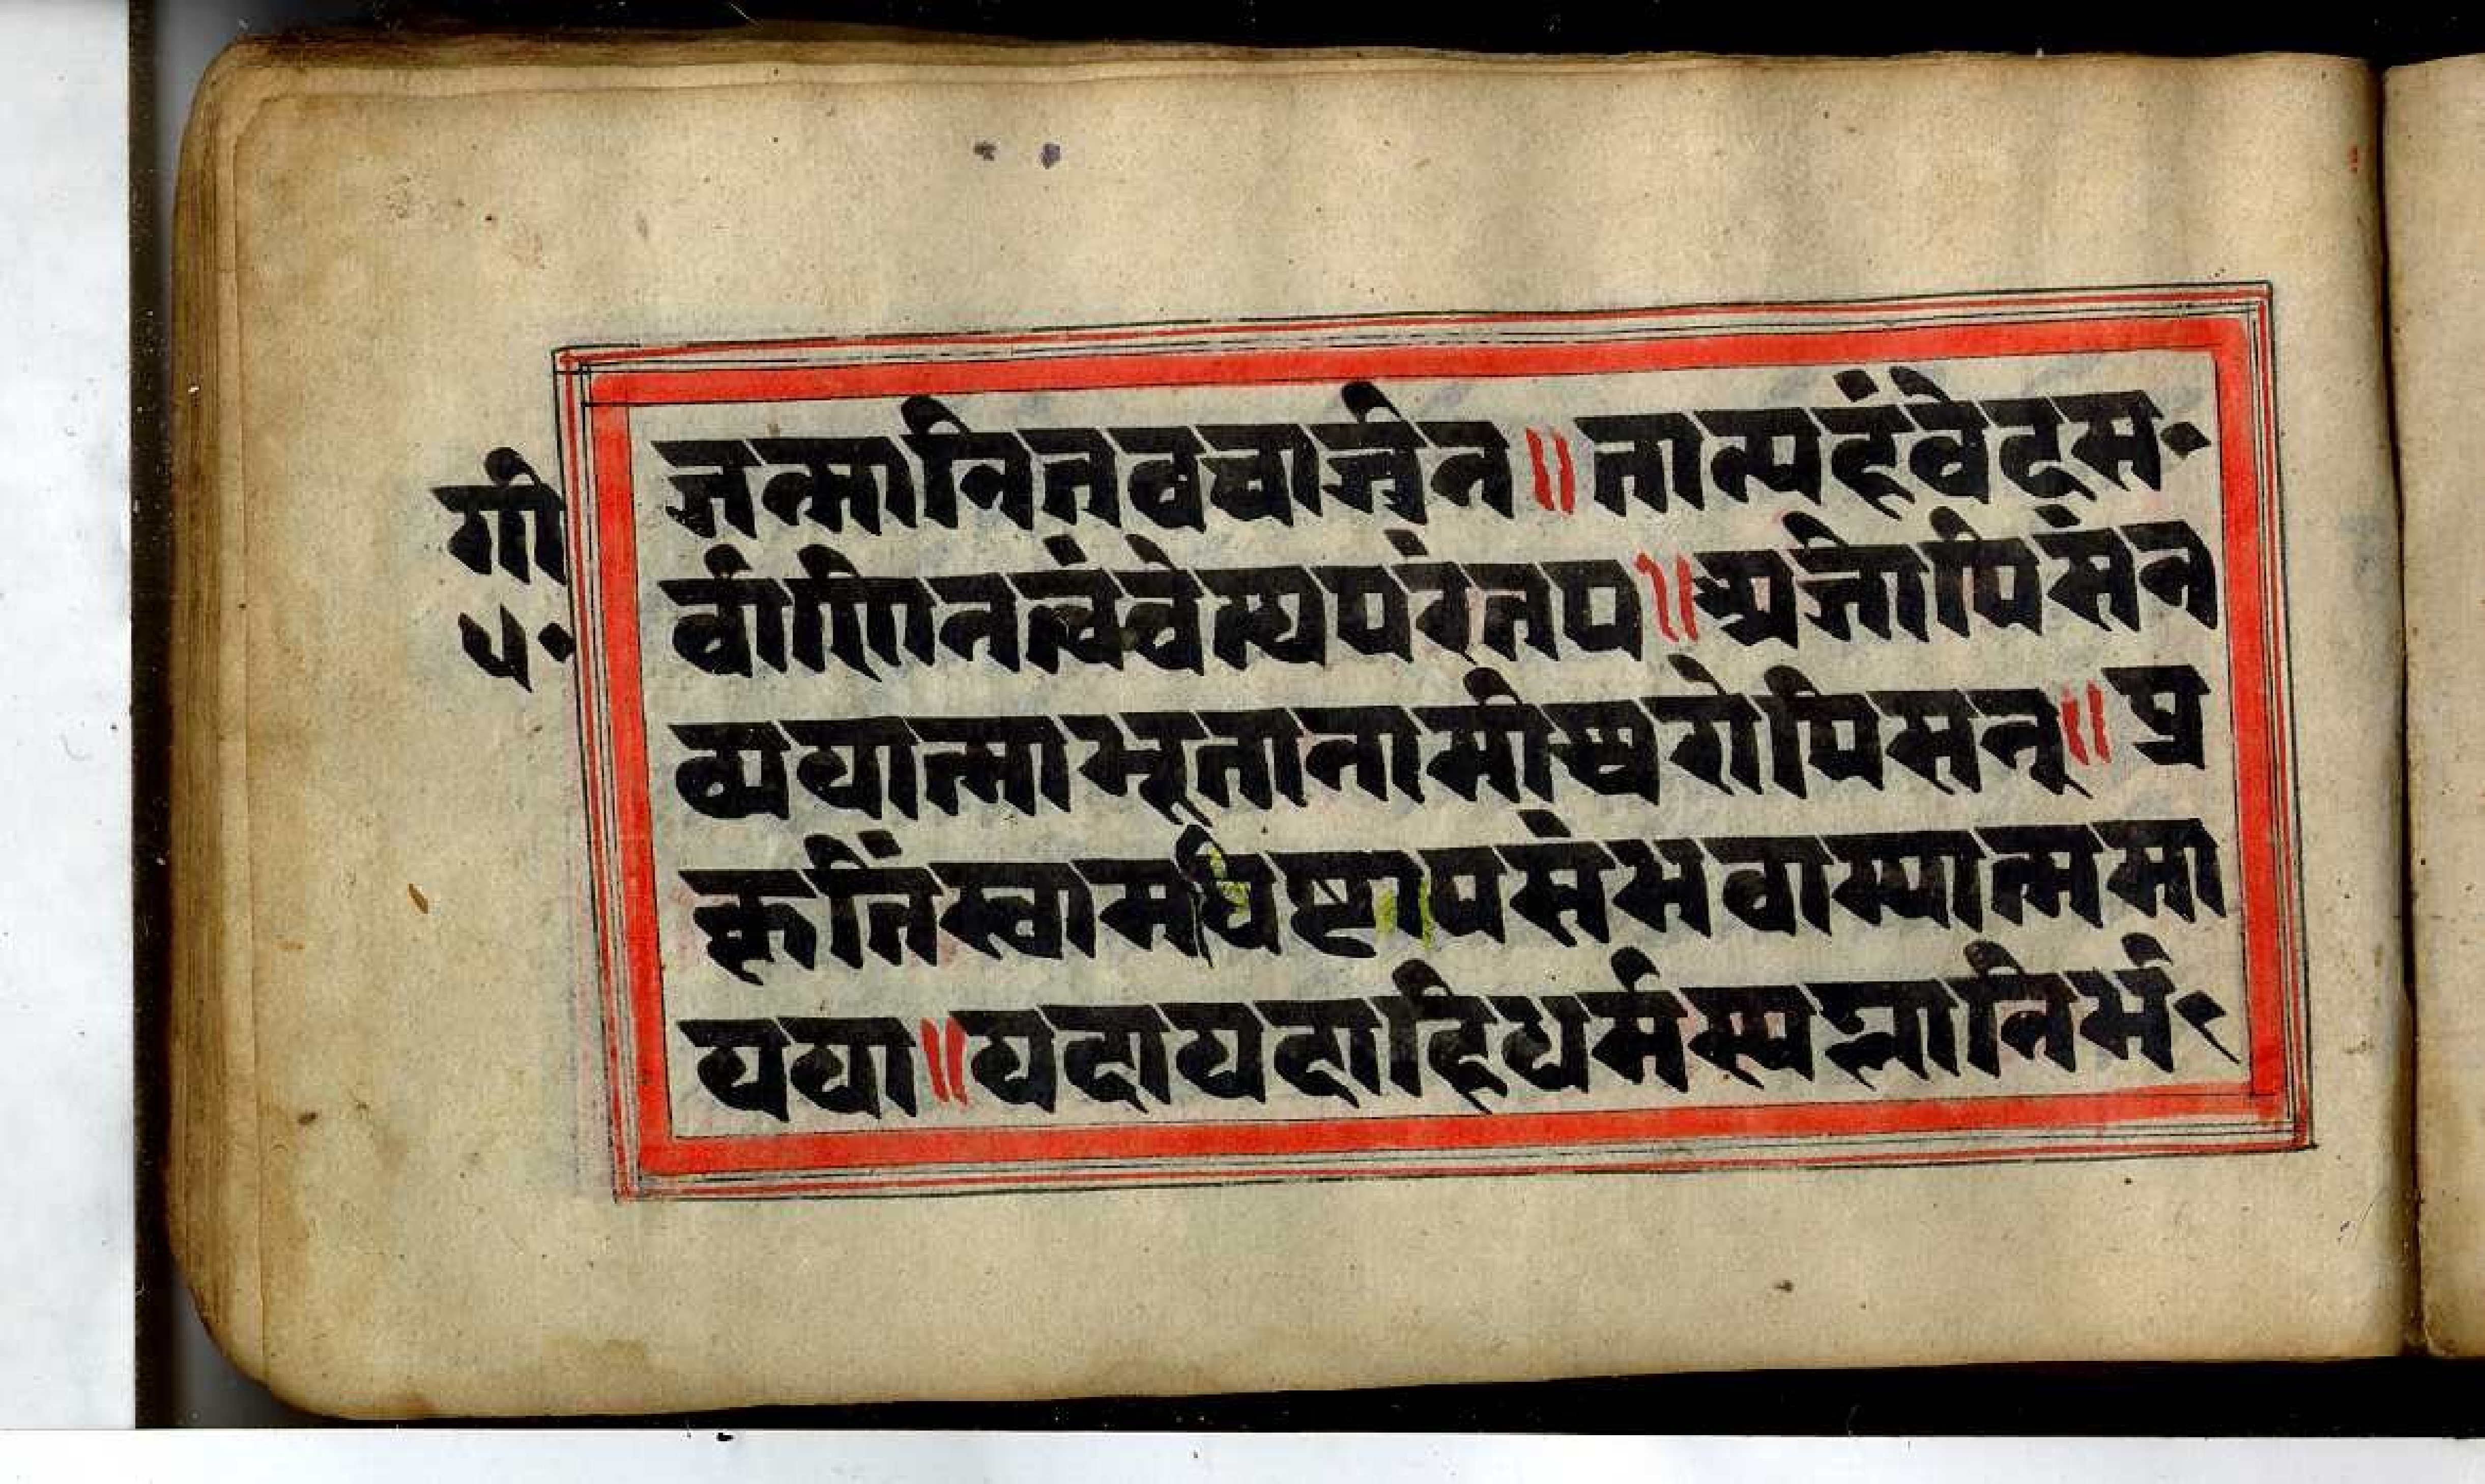 गी
५०
जन्मानितवचार्जुन॥तान्यहंवेदस॰
र्वाणिनत्वंवेत्थपरंतप॥अजोपिसंन
व्ययात्माभूतानामीश्वरोपिसन्॥प्र
कृतिंस्वामधिष्टायसंभवाम्यात्ममा
यया॥यदायदाहिधर्मस्यग्लानिर्भ॰